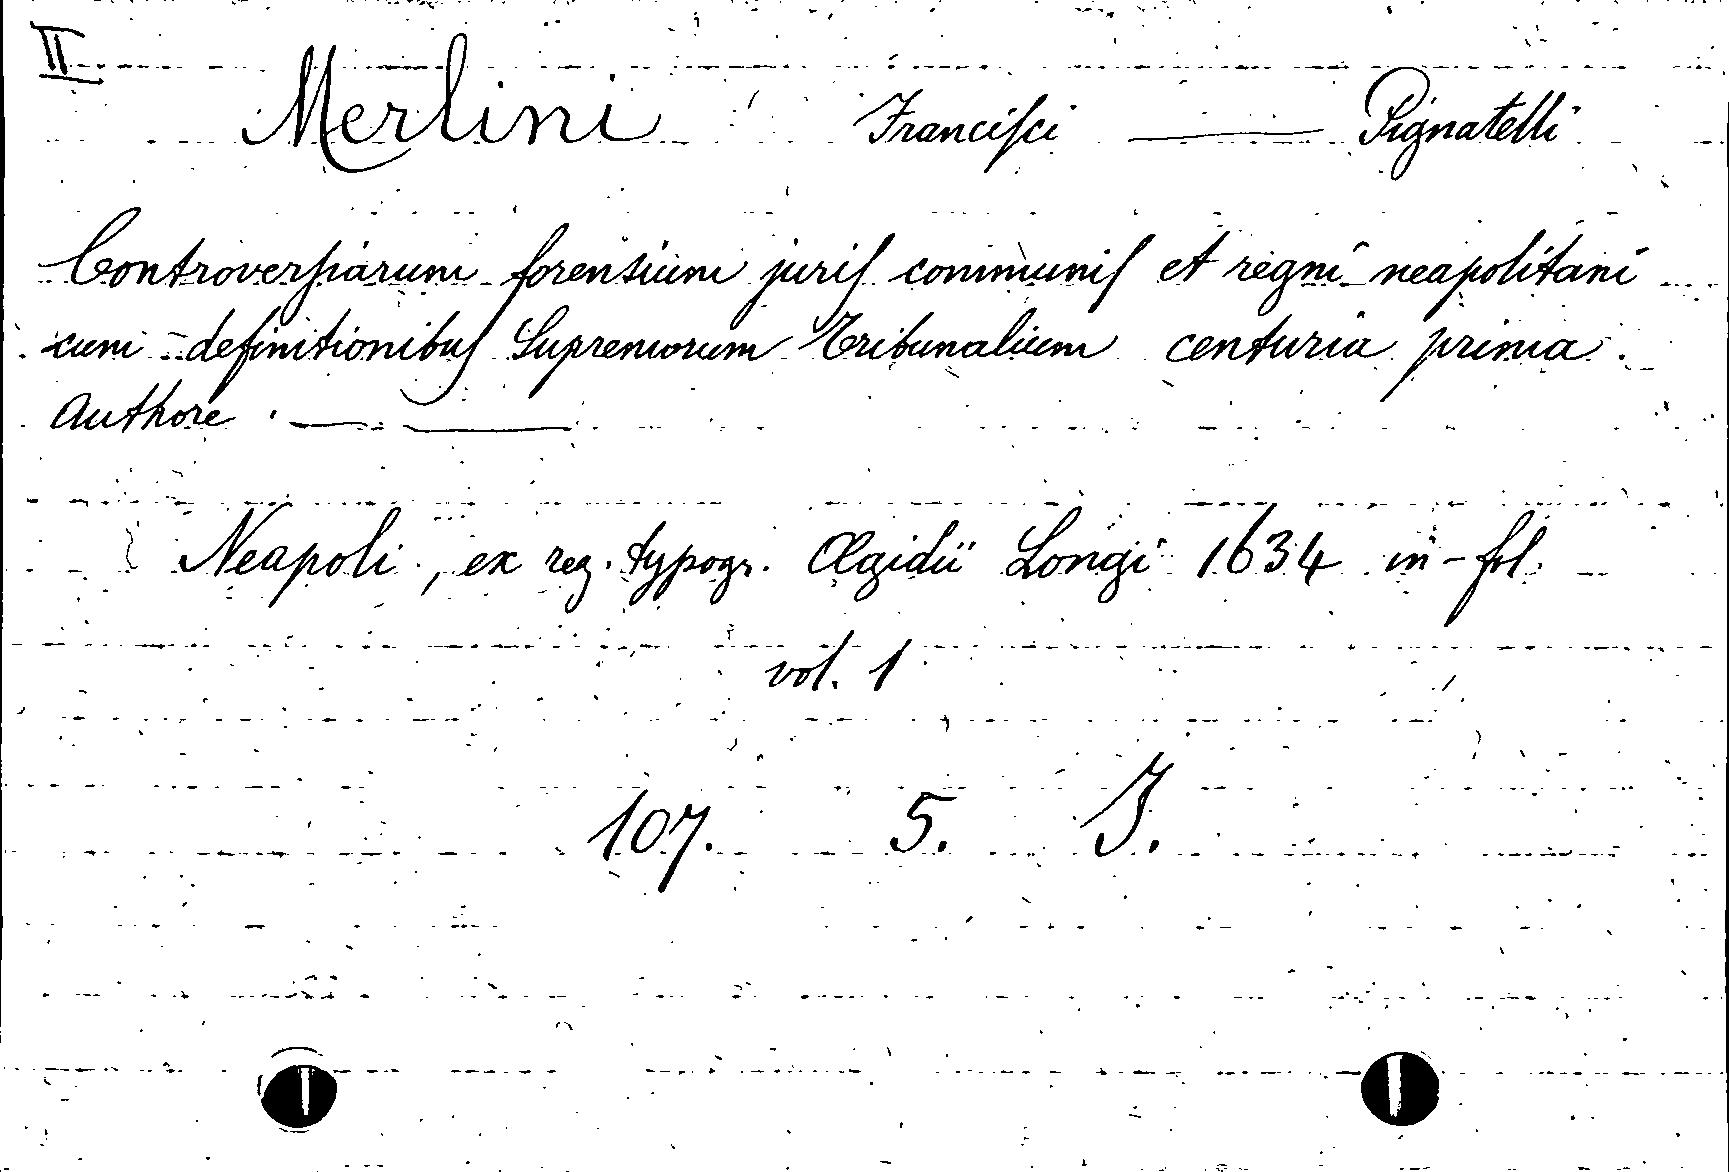 II
Merlini Franciſci —— Pignatelli
Controverſiarum forensium juriſ communiſ et regni neapolitani
cum definitionibuſ Supremorum Tribunalium centuria prima.
Authore. — ——
Neapoli, ex reg. typogr. Ægidii Longi 1634 in-fol.
vol. 1
107. 5. I.